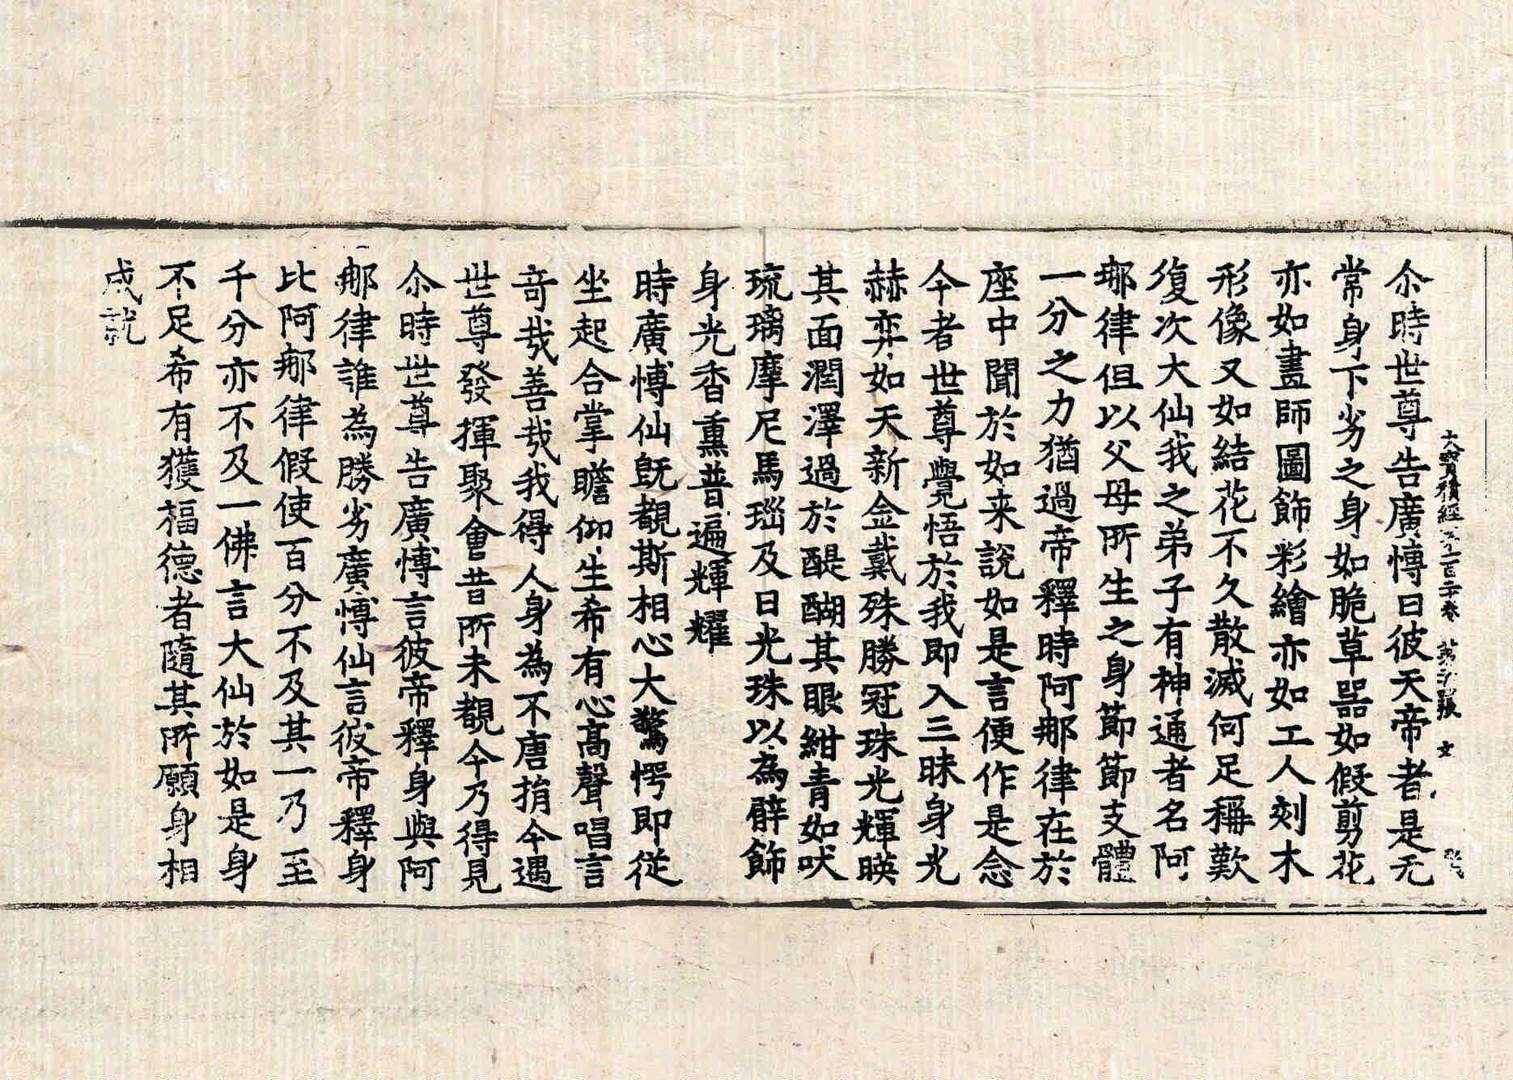 大寶積經 第一百二十卷 第 張 文
尒時世尊告廣博曰彼天帝者是无
常身下劣之身如脆草器如假剪花
亦如畫師圖飾彩繪亦如工人剡木
形像又如結花不久散滅何足稱歎
復次大仙我之弟子有神通者名阿
那律但以父母所生之身節節支體
一分之力猶過帝釋時阿那律在於
座中聞於如来說如是言便作是念
今者世尊覺悟於我即入三昧身光
赫弈如天新金戴殊勝冠珠光輝暎
其面潤澤過於醍醐其眼紺青如吠
琉璃摩尼馬瑙及日光珠以為臂飾
身光香熏普遍輝耀
時廣愽仙旣覩斯相心大驚愕即從
坐起合掌瞻仰生希有心高聲唱言
竒㢤善㢤我得人身為不唐捐今遇
世尊發揮聚會昔所未覩今乃得見
尒時世尊告廣愽言彼帝釋身與阿
那律誰為勝劣廣愽仙言彼帝釋身
比阿那律假使百分不及其一乃至
千分亦不及一佛言大仙於如是身
不足希有獲福德者隨其所願身相
成就